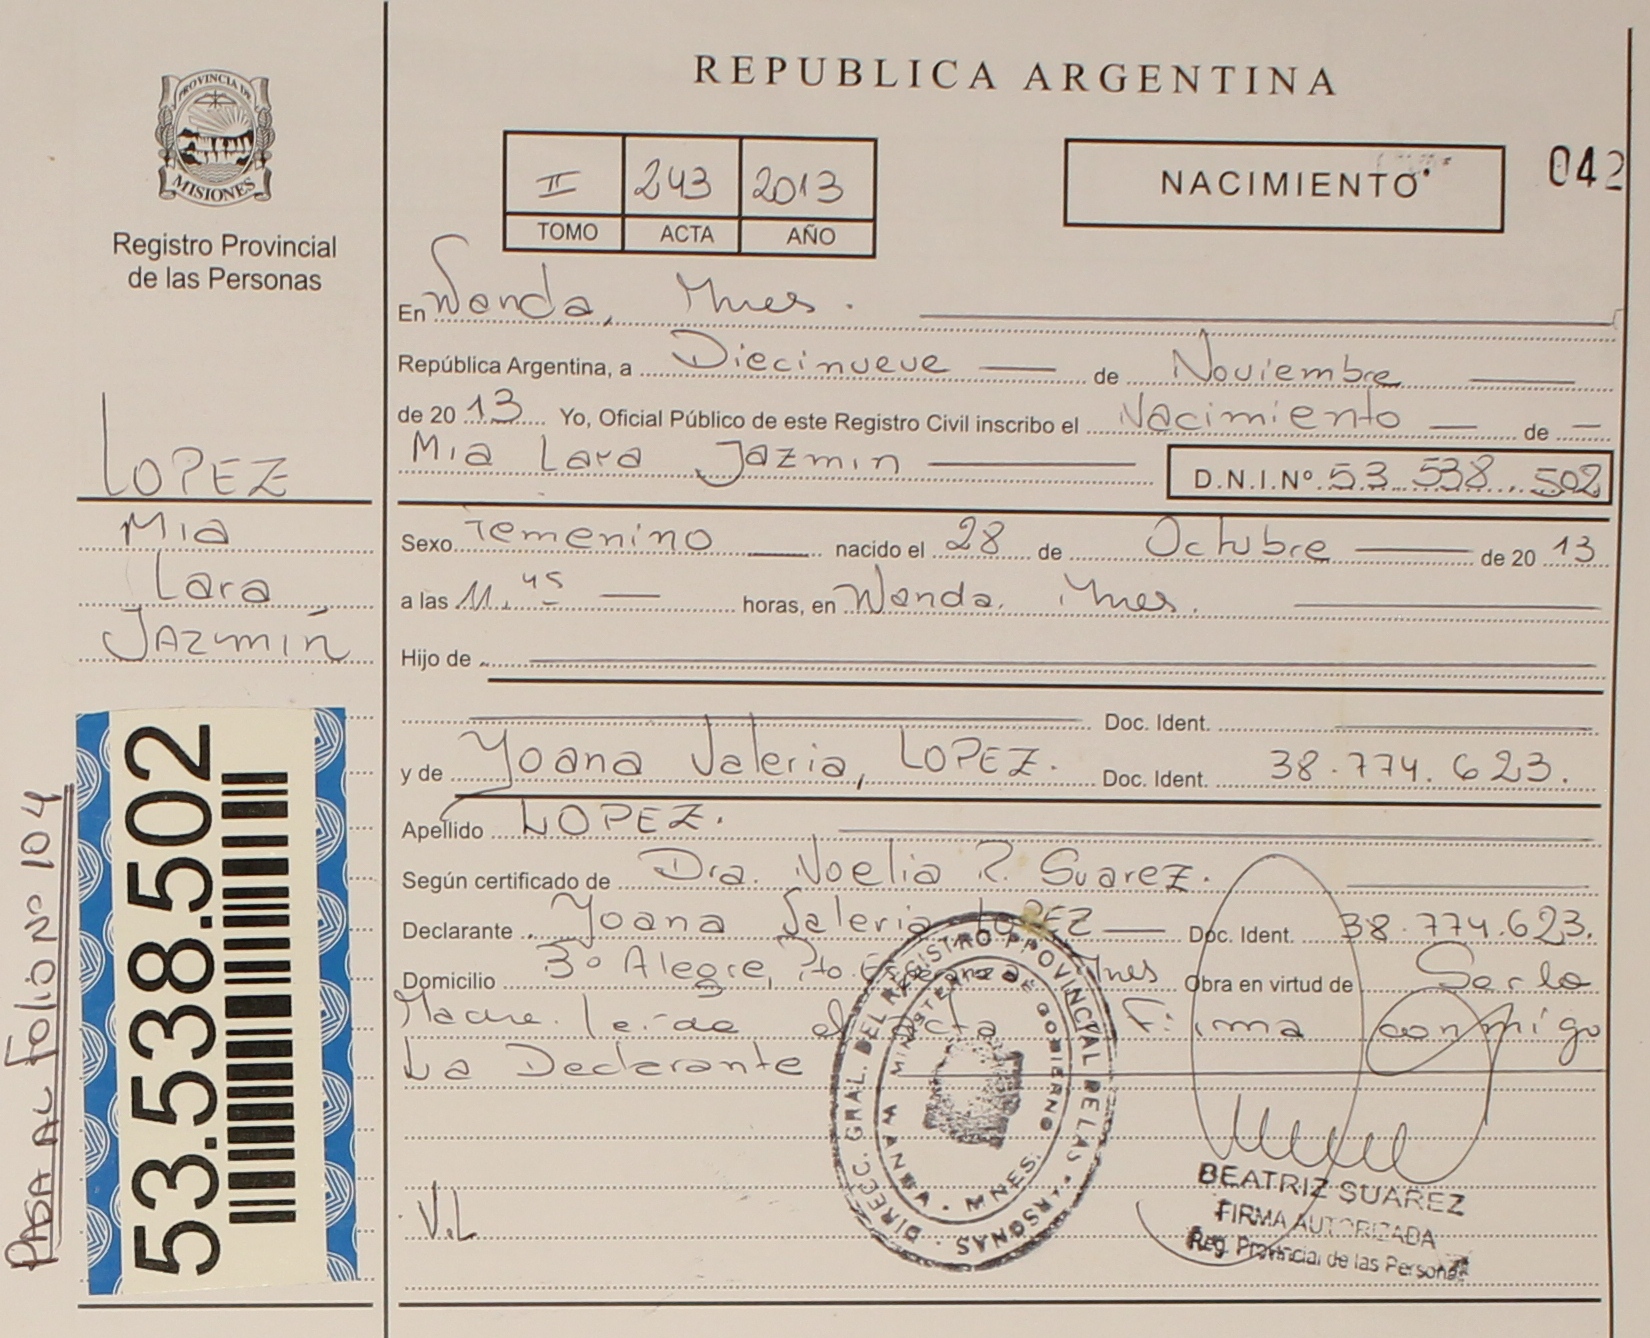 REPUBLICA ARGENTINA
PROVINCIA DE
MISIONES
Registro Provincial
de las Personas
II 243 2013
TOMO ACTA AÑO
NACIMIENTO
042
En Wanda, Mnes.
República Argentina, a Diecinueve de Noviembre
de 2013 Yo, Oficial Público de este Registro Civil inscribo el Nacimiento de
Mia Lara Jazmin D.N.I.Nº 53.538.502
Sexo Femenino nacido el 28 de Octubre de 2013
a las 11.45 horas, en Wanda. Mnes.
Hijo de
Doc. Ident.
y de Yoana Valeria, LOPEZ. Doc. Ident. 38.774.623.
Apellido LOPEZ.
Según certificado de Dra. Noelia R. Suarez.
Declarante Yoana Valeria LOPEZ Doc. Ident. 38.774.623.
Domicilio 3º Alegre, Pto. Esperanza Mnes Obra en virtud de Serlo
Madre. leída el acta Firma conmigo
La Declarante
V.L
LOPEZ
Mia
Lara
JAZMíN
53.538.502
PASA AL Folio Nº 104
DIREC. GRAL. DEL REGISTRO PROVINCIAL DE LAS PERSONAS
MINISTERIO DE GOBIERNO
WANDA - MNES.
BEATRIZ SUAREZ
FIRMA AUTORIZADA
Reg. Provincial de las Personas